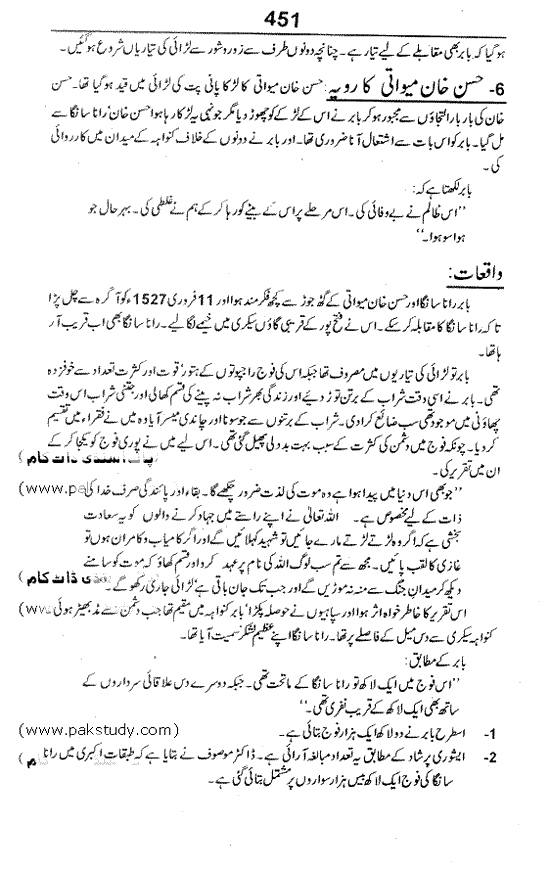 451
ہو گیا کہ بابر بھی مقابلے کے لیے تیار ہے۔ چنانچہ دونوں طرف سے زور و شور سے لڑائی کی تیاریاں شروع ہو گئیں۔
6- حسن خان میواتی کا رویہ: حسن خان میواتی کا لڑکا پانی پت کی لڑائی میں قید ہو گیا تھا۔ حسن
خان کی بار بار التجاؤں سے مجبور ہو کر بابر نے اس کے لڑکے کو چھوڑ دیا مگر جونہی یہ لڑکا رہا ہوا حسن خان رانا سانگا سے
مل گیا۔ بابر کو اس بات سے اشتعال آنا ضروری تھا۔ اور بابر نے دونوں کے خلاف کنواہہ کے میدان میں کارروائی
کی۔
بابر لکھتا ہے کہ:
''اس ظالم نے بے وفائی کی۔ اس مرحلے پر اس کے بیٹے کو رہا کر کے ہم نے غلطی کی۔ بہر حال جو
ہوا سو ہوا۔''
واقعات:
بابر رانا سانگا اور حسن خان میواتی کے گٹھ جوڑ سے کچھ فکر مند ہوا اور 11 فروری 1527ء کو آگرہ سے چل پڑا
تا کہ رانا سانگا کا مقابلہ کر سکے۔ اس نے فتح پور کے قریبی گاؤں سیکری میں خیمے لگا لیے۔ رانا سانگا بھی اب قریب آ ر
ہا تھا۔
بابر تو لڑائی کی تیاریوں میں مصروف تھا جبکہ اس کی فوج راجپوتوں کے تہور' قوت اور کثرت تعداد سے خوفزدہ
تھی۔ بابر نے اسی وقت شراب کے برتن توڑ دیئے اور زندگی بھر شراب نہ پینے کی قسم کھا لی اور جتنی شراب اس وقت
چھاؤنی میں موجود تھی سب ضائع کرا دی۔ شراب کے برتنوں سے جو سونا اور چاندی میسر آیا وہ میں نے فقراء میں تقسیم
کر دیا۔ چونکہ فوج میں دشمن کی کثرت کے سبب بہت بددلی پھیل گئی تھی۔ اس لیے میں نے پوری فوج کو یکجا کر کے
ان میں تقریر کی۔
''جو بھی اس دنیا میں پیدا ہوا ہے وہ موت کی لذت ضرور چکھے گا۔ بقاء اور پائندگی صرف خدا کی (www.pa
ذات کے لیے مخصوص ہے۔ اللہ تعالیٰ نے اپنے راستے میں جہاد کرنے والوں کو یہ سعادت
بخشی ہے کہ اگر وہ لڑتے لڑتے مارے جائیں تو شہید کہلائیں گے اور اگر کامیاب و کامران ہوں تو
غازی کا لقب پائیں۔ مجھ سے تم سب لوگ اللہ کی نام پر عہد کرو اور قسم کھاؤ کہ موت کو سامنے
دیکھ کر میدانِ جنگ سے منہ نہ موڑیں گے اور جب تک جان باقی ہے' لڑائی جاری رکھو گے۔ ڈاٹ کام)
اس تقریر کا خاطر خواہ اثر ہوا اور سپاہیوں نے حوصلہ پکڑا' بابر کنواہہ میں مقیم تھا جب دشمن سے مڈبھیڑ ہوئی (ww
کنواہہ سیکری سے دس میل کے فاصلے پر تھا۔ رانا سانگا اپنے عظیم لشکر سمیت آیا تھا۔
بابر کے مطابق:
''اس فوج میں ایک لاکھ تو رانا سانگا کے ماتحت تھی۔ جبکہ دوسرے دس علاقائی سرداروں کے
ساتھ بھی ایک لاکھ کے قریب نفری تھی۔''
1- اسطرح بابر نے دو لاکھ ایک ہزار فوج بتائی ہے۔ (www.pakstudy.com)
2- ایشوری پرشاد کے مطابق یہ تعداد مبالغہ آرائی ہے۔ ڈاکٹر موصوف نے بتایا ہے کہ طبقات اکبری میں رانا
سانگا کی فوج ایک لاکھ بیس ہزار سواروں پر مشتمل بتائی گئی ہے۔